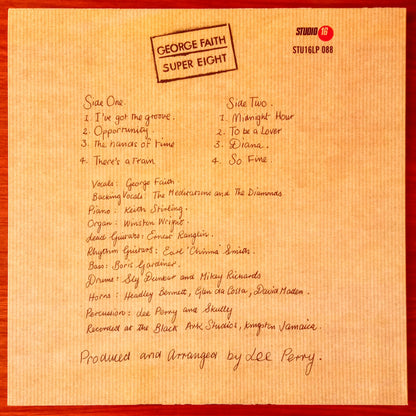 GEORGE FAITH
SUPER EIGHT
STUDIO 16
STU16LP 088
Side One.
1. I've got the groove.
2. Opportunity.
3. The hands of time
4. There's a train
Side Two.
1. Midnight Hour
2. To be a Lover
3. Diana.
4. So Fine.
Vocals: George Faith.
Backing Vocals: The Meditations and The Diamonds.
Piano: Keith Stirling.
Organ: Winston Wright.
Lead Guitars: Ernest Ranglin.
Rhythm Guitars: Earl 'Chinna' Smith.
Bass: Boris Gardiner.
Drums: Sly Dunbar and Mikey Richards
Horns: Headley Bennett, Glen da Costa, David Maden.
Percussion: Lee Perry and Skully
Recorded at the Black Ark Studios, Kingston Jamaica.
Produced and Arranged by Lee Perry.